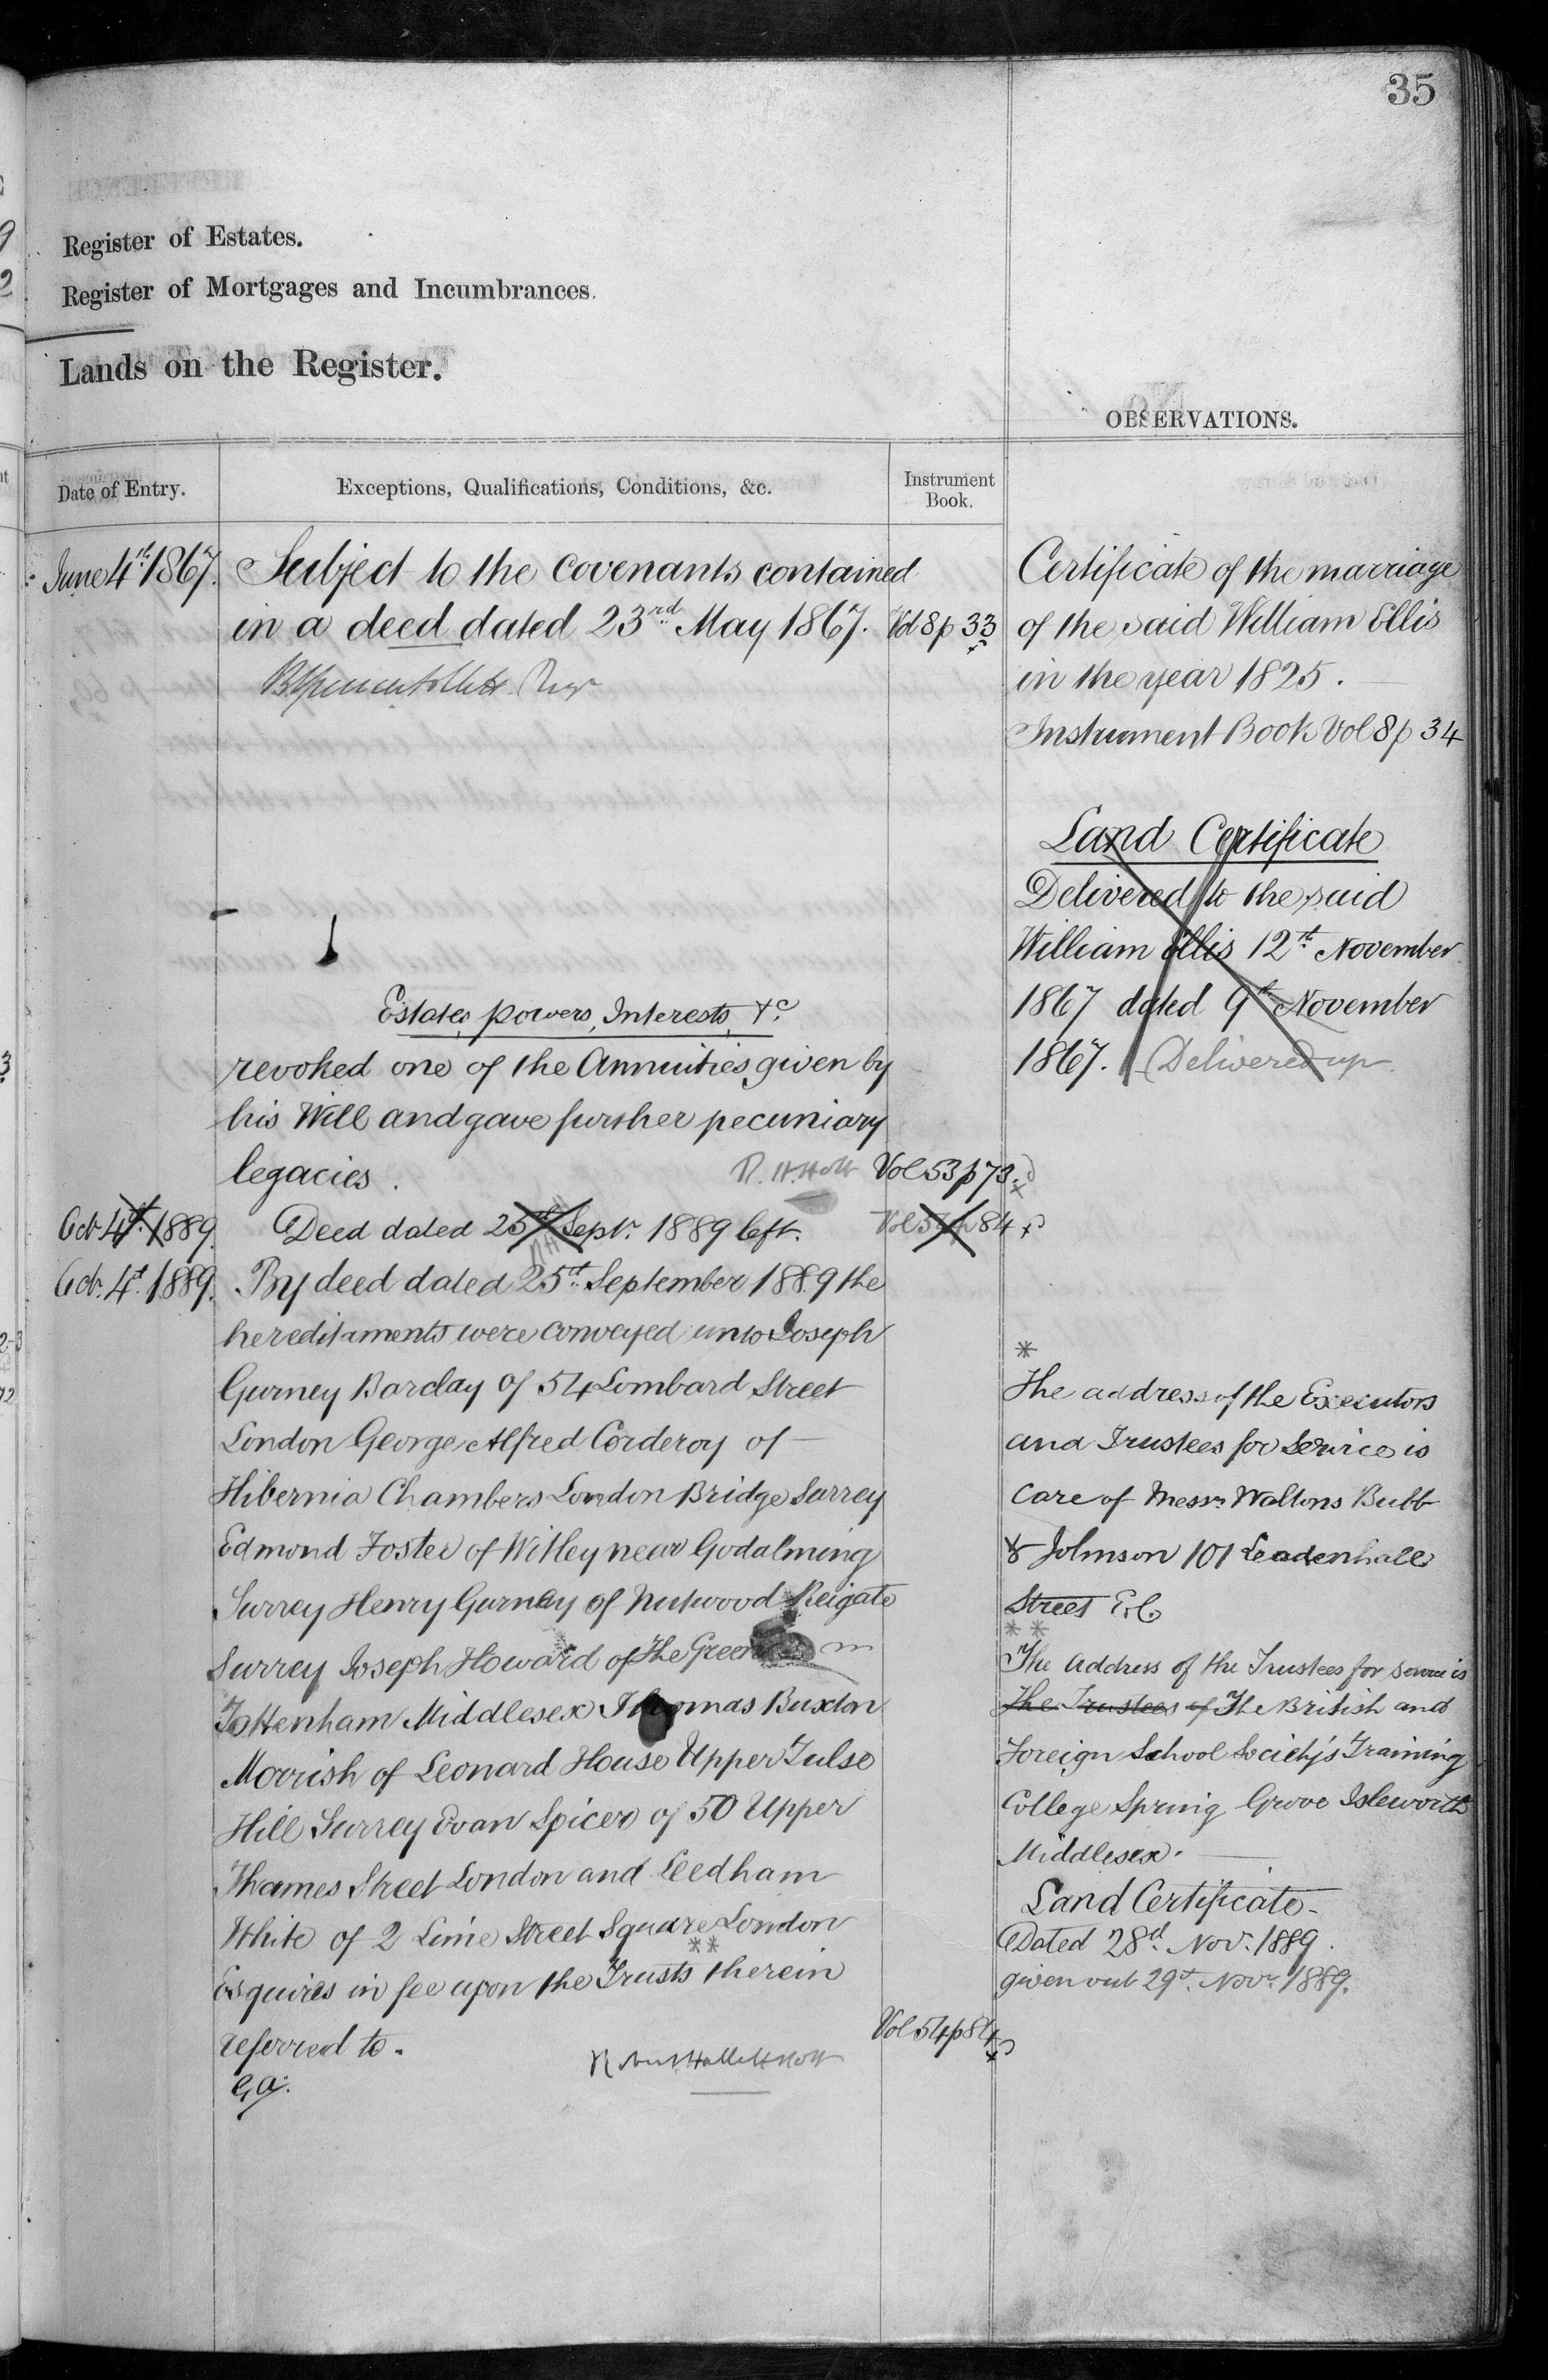 35
Register of Estates.
Register of Mortgages and Incumbrances.
Lands on the Register.
OBSERVATIONS.
Date of Entry.
Exceptions, Qualifications, Conditions, &c.
Instrument
Book.
June 4th 1867.
Subject to the covenants contained
in a deed dated 23rd May 1867. Vol 8 p 33
Estates, powers, Interests, &c
revoked one of the Annuities given by
his Will and gave further pecuniary
legacies. R. H. Holt Vol 53 p 73.
Oct 4th 1889. Deed dated 25th Septr. 1889 left. Vol 54 p 84
Oct. 4th 1889. By deed dated 25th September 1889 the
hereditaments were conveyed unto Joseph
Gurney Barclay of 54 Lombard Street
London George Alfred Corderoy of
Hibernia Chambers London Bridge Surrey
Edmond Foster of Witley near Godalming
Surrey Henry Gurney of Nutwood Reigate
Surrey Joseph Howard of The Green
Tottenham Middlesex Thomas Buxton
Morrish of Leonard House Upper Tulse
Hill Surrey Evan Spicer of 50 Upper
Thames Street London and Leedham
White of 2 Lime Street Square London
**
Esquires in fee upon the Trusts therein
referred to.
Vol 54 p 84
G.A.
Certificate of the marriage
of the said William Ellis
in the year 1825.
Instrument Book Vol 8 p 34
Land Certificate
Delivered to the said
William Ellis 12th November
1867 dated 9th November
1867. (Delivered up
*
The address of the Executors
and Trustees for Service is
care of Messrs Waltons Bubb
& Johnson 101 Leadenhall
Street E.C.
**
The Address of the Trustees for service is
The Trustees of The British and
Foreign School Society's Training
College Spring Grove Isleworth
Middlesex.
Land Certificate
Dated 28th. Nov. 1889.
given out 29th. Novr. 1889.